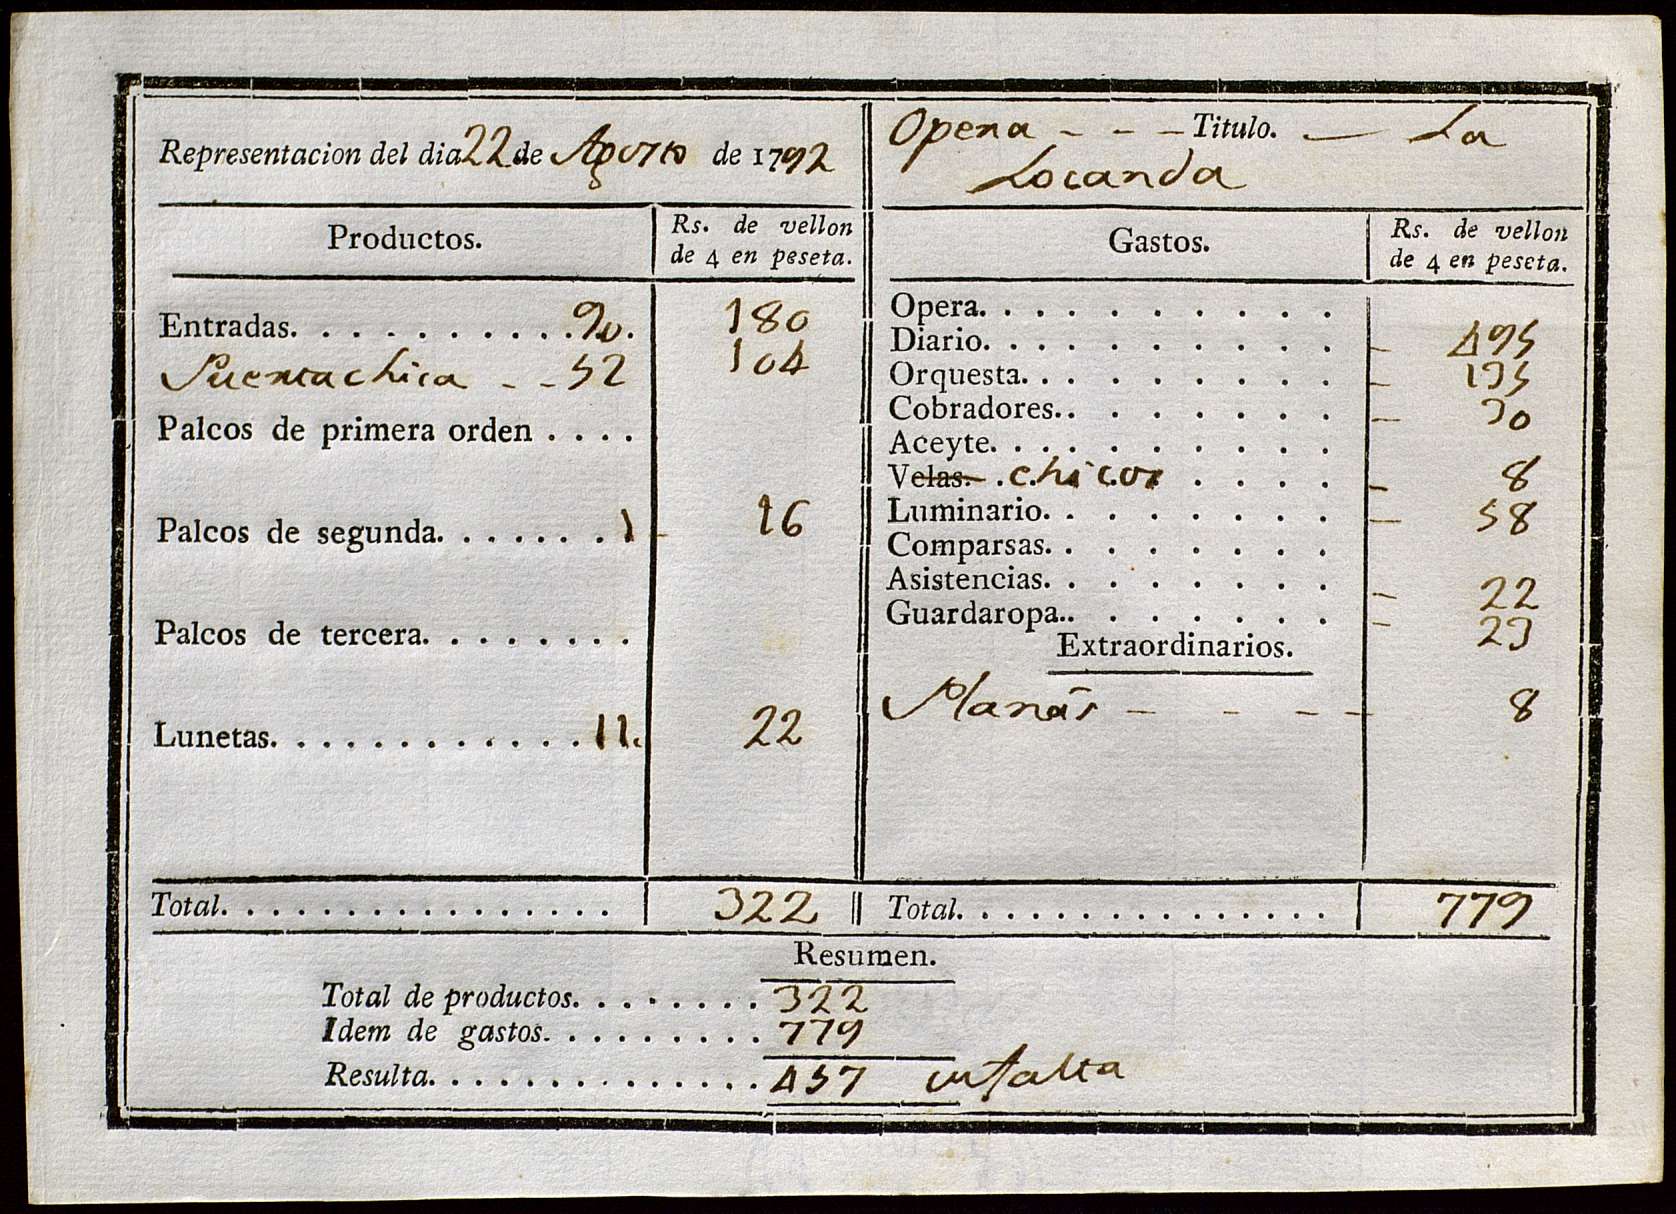 Representacion del dia 22 de Agosto de 1792
Opera - - - Titulo. — La
Locanda
Productos.
Rs. de vellon
de 4 en peseta.
Entradas. . . . . . . . . . . 90. 180
Puerta chica - - 52 104
Palcos de primera orden . . . .
Palcos de segunda. . . . . . . 1 - 16
Palcos de tercera. . . . . . . .
Lunetas. . . . . . . . . . . . . 11. 22
Total. . . . . . . . . . . . . . . . 322
Gastos.
Rs. de vellon
de 4 en peseta.
Opera. . . . . . . . . .
Diario. . . . . . . . . . - 495
Orquesta. . . . . . . . . - 135
Cobradores.. . . . . . . . - 30
Aceyte. . . . . . . . . .
Velas. . chicos . . . . - 8
Luminario. . . . . . . . - 58
Comparsas. . . . . . . .
Asistencias. . . . . . . . - 22
Guardaropa.. . . . . . . - 23
Extraordinarios.
- - - - 8
Total. . . . . . . . . . . . . . . 779
Resumen.
Total de productos. . . . . . . . 322
Idem de gastos. . . . . . . . . 779
Resulta. . . . . . . . . . . . . . 457 en falta